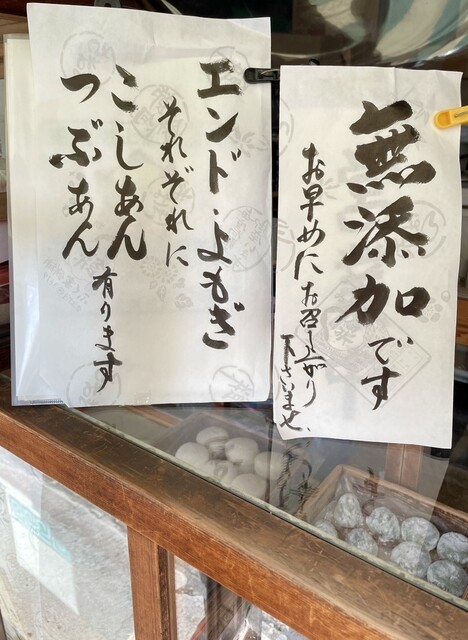 無添加です
お早めにお召し上がり
下さいませ、
エンド・よもぎ
それぞれに
こしあん
つぶあん
有ります